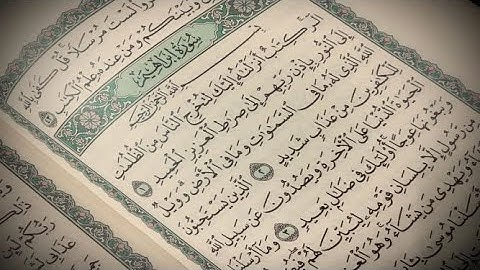 لَسْتَ مُرْسَلًا قُلْ كَفَىٰ بِٱللَّهِ
وَبَيْنَكُمْ وَمَنْ عِندَهُۥ عِلْمُ ٱلْكِتَٰبِ ٤٣
سُورَةُ إِبْرَاهِيمَ
بِسْمِ ٱللَّهِ ٱلرَّحْمَٰنِ ٱلرَّحِيمِ
الٓر كِتَٰبٌ أَنزَلْنَٰهُ إِلَيْكَ لِتُخْرِجَ ٱلنَّاسَ مِنَ ٱلظُّلُمَٰتِ
إِلَى ٱلنُّورِ بِإِذْنِ رَبِّهِمْ إِلَىٰ صِرَٰطِ ٱلْعَزِيزِ ٱلْحَمِيدِ ١
ٱللَّهِ ٱلَّذِي لَهُۥ مَا فِي ٱلسَّمَٰوَٰتِ وَمَا فِي ٱلْأَرْضِ وَوَيْلٌ
لِّلْكَٰفِرِينَ مِنْ عَذَابٍ شَدِيدٍ ٢ ٱلَّذِينَ يَسْتَحِبُّونَ
ٱلْحَيَوٰةَ ٱلدُّنْيَا عَلَى ٱلْأٓخِرَةِ وَيَصُدُّونَ عَن سَبِيلِ ٱللَّهِ
وَيَبْغُونَهَا عِوَجًا أُو۟لَٰٓئِكَ فِي ضَلَٰلٍۭ بَعِيدٍ ٣ وَمَآ أَرْسَلْنَا
مِن رَّسُولٍ إِلَّا بِلِسَانِ قَوْمِهِۦ لِيُبَيِّنَ لَهُمْ
وَيَهْدِي مَن يَشَآءُ وَهُوَ
مُوسَىٰ